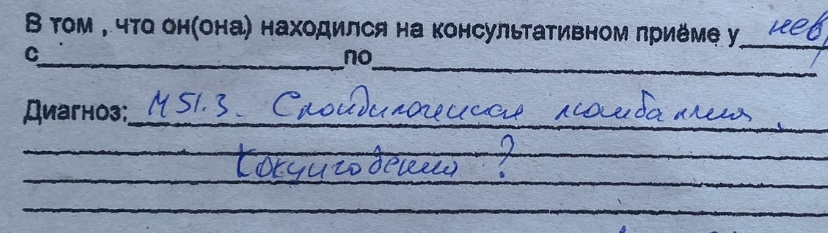 В том , что он(она) находился на консультативном приёме у нев
с по
Диагноз: М 51.3. Спондилогенная люмбалгия.
Кокцигодения ?